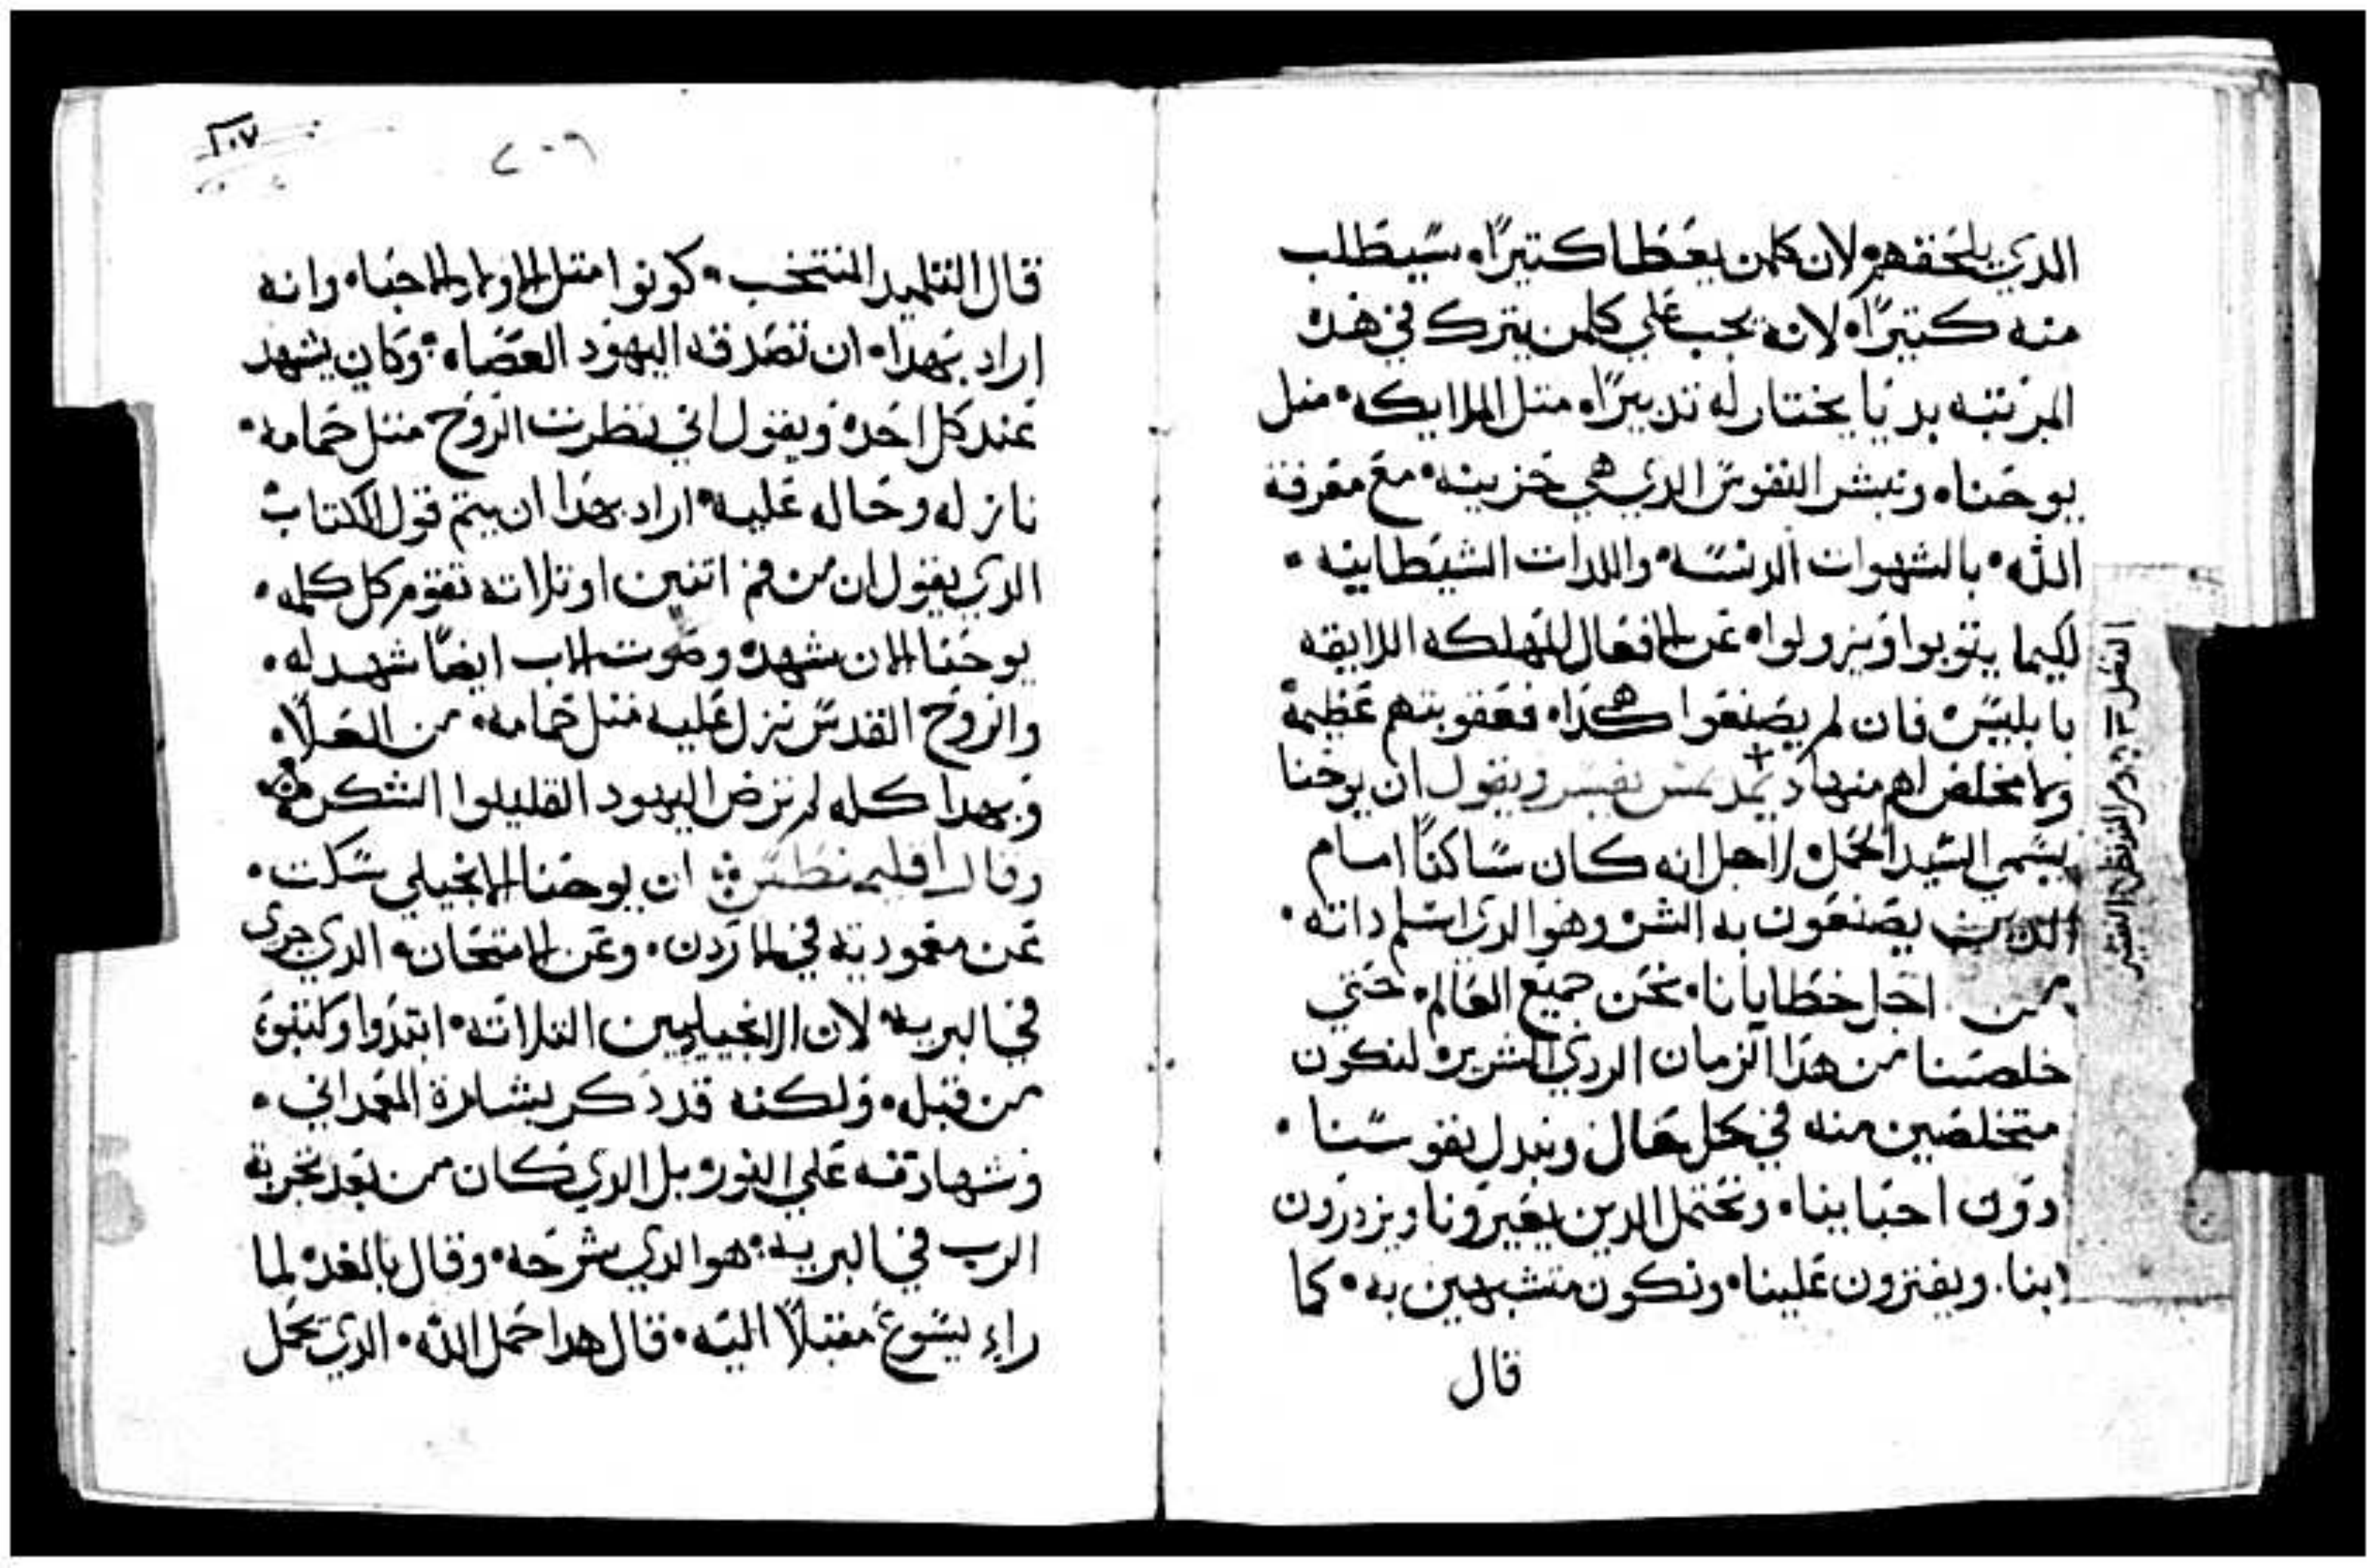 الدي يلحقهم لان كلمن يعطا كتيرًا. سيطلب
منه كتيرًا. لانه يجب علي كلمن يترك في هده
المرتبه بديا يختار له تدبيرًا. متل الملايكه. متل
يوحنا. وتبشر النفوس الدي هي حزينه. مع معرفة
الله. بالشهوات الدنسه. واللدات الشيطانيه.
لكيما يتوبوا ويزولوا. عن الافعال المهلكه اللايقه
بابليس. فان لم يصنعوا هكدا. فعقوبتهم عظيمة
وما مخلص لهم منها. يفسر ويقول ان يوحنا
يسمي السيد الحمل. لاجل انه كان ساكتًا امام
الدين يصنعون به الشر. وهو الدي اسلم داته.
من اجل خطايانا. نحن جميع العالم. حتي
خلصنا من هدا الزمان الردي الشرير. لنكون
متخلصين منه في كل حال. ونبدل نفوسنا.
دون احبابنا. ونحتمل الدين يعيرونا ويزدرون
بنا. ويفترون علينا. ونكون متشبهين به. كما
قال
٢٠٧
٢٠٦
قال التلميد المنتخب. كونوا متل الاولاد الاحبا. وانه
اراد بهدا. ان تصدقه اليهود العصاه. وكان يشهد
عند كل احد. ويقول اني نظرت الروح متل حمامه.
نازله وحاله عليه. اراد بهدا ان يتم قول الكتاب
الدي يقول ان من فم اتنين او تلاته تقوم كل كلمه.
يوحنا الان شهد. وصوت الاب ايضًا شهد له.
والروح القدس نزل عليه متل حمامه. من العلا.
وبهدا كله لم ترض اليهود القليلوا الشكر
وقال اقليمنطس ان يوحنا الانجيلي سكت.
عن معموديته في الاردن. وعن الامتحان. الدي جرى
في البريه. لان الانجيليين التلاته. ابتدوا وكتبوه
من قبله. ولكنه قد دكر بشارة المعمداني.
وشهادته علي النور. بل الدي كان من بعد تجربة
الرب في البريه. هو الدي شرحه. وقال بالغد. لما
راء يسوع مقبلًا اليه. قال هدا حمل الله. الدي يحمل